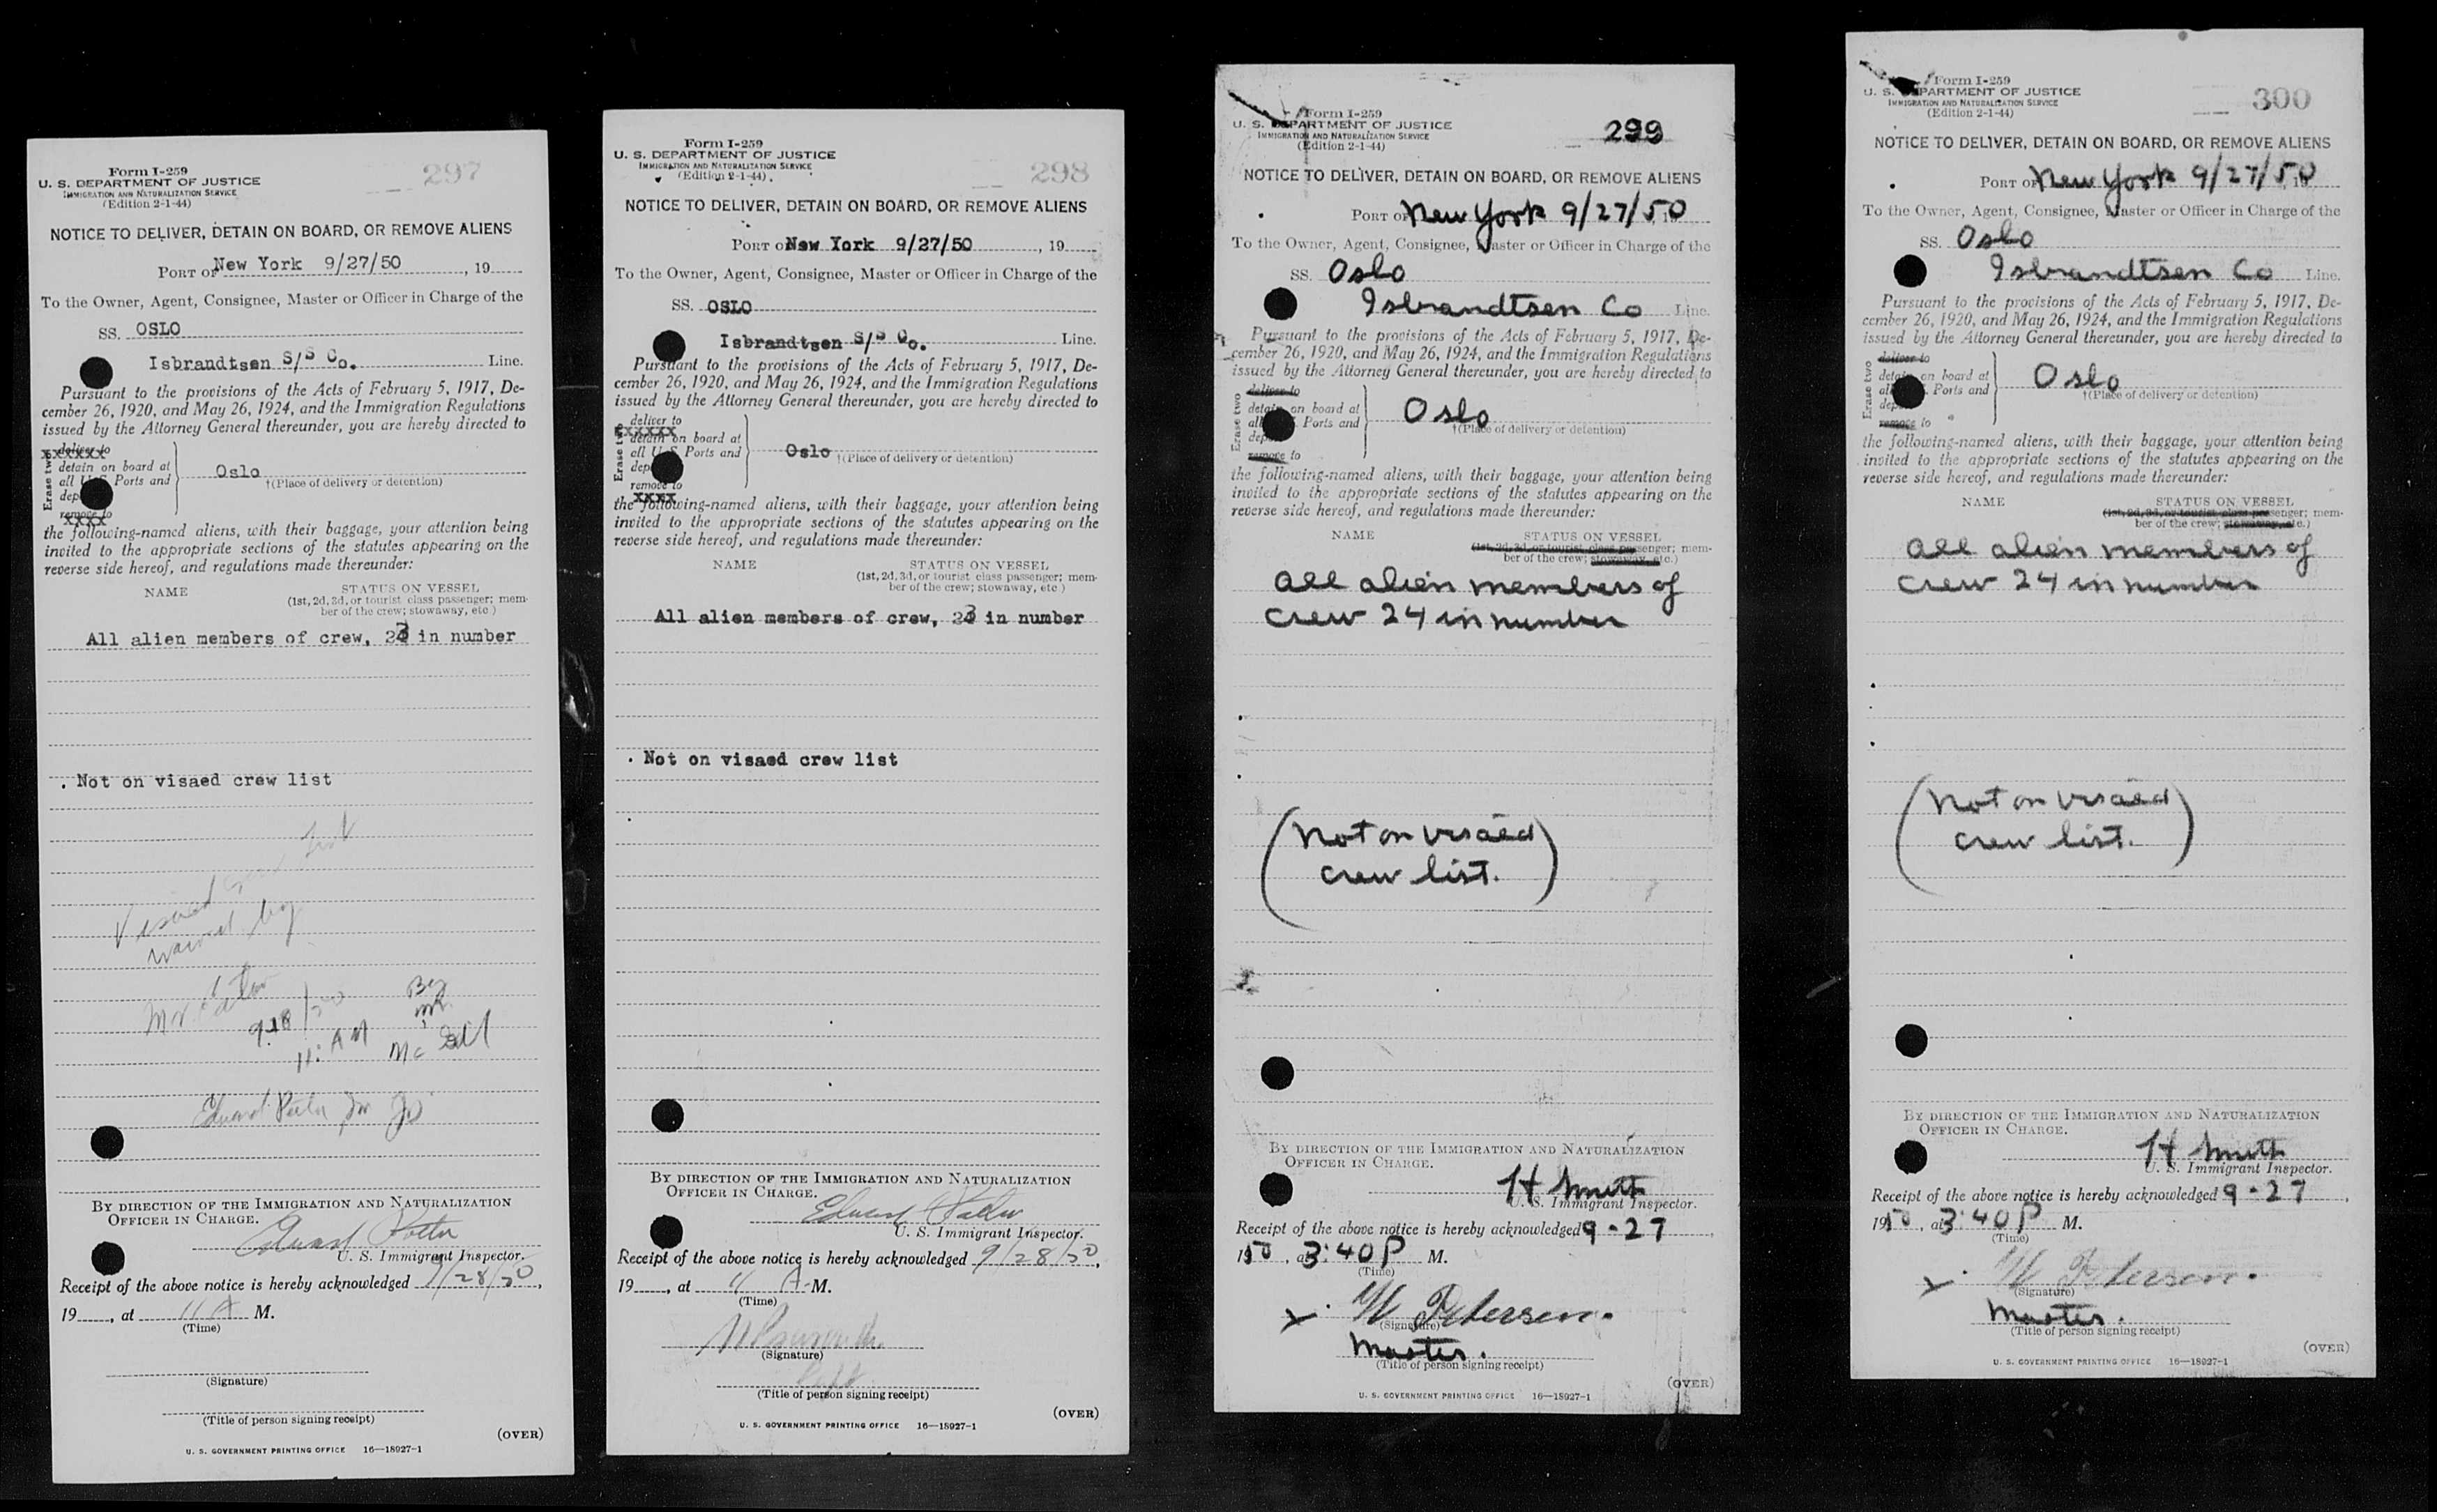 Form I-259
U. S. DEPARTMENT OF JUSTICE
IMMIGRATION AND NATURALIZATION SERVICE
(Edition 2-1-44)
297
NOTICE TO DELIVER, DETAIN ON BOARD, OR REMOVE ALIENS
PORT OF New York 9/27/50, 19
To the Owner, Agent, Consignee, Master or Officer in Charge of the
SS. OSLO
Isbrandtsen S/S Co. Line.
Pursuant to the provisions of the Acts of February 5, 1917, De-
cember 26, 1920, and May 26, 1924, and the Immigration Regulations
issued by the Attorney General thereunder, you are hereby directed to
Erase two
deliver to
detain on board at
all U S Ports and
dep
remove to
Oslo
†(Place of delivery or detention)
the following-named aliens, with their baggage, your attention being
invited to the appropriate sections of the statutes appearing on the
reverse side hereof, and regulations made thereunder:
NAME STATUS ON VESSEL
(1st, 2d, 3d, or tourist class passenger; mem-
ber of the crew; stowaway, etc.)
All alien members of crew, 23 in number
. Not on visaed crew list
Visaed crew list
waived by
Mr
9-28/50
11: AM
By
Mr.
Edward
BY DIRECTION OF THE IMMIGRATION AND NATURALIZATION
OFFICER IN CHARGE.
Edward
U. S. Immigrant Inspector.
Receipt of the above notice is hereby acknowledged 9/28/50,
19, at 11 A M.
(Time)
(Signature)
(Title of person signing receipt)
(OVER)
U. S. GOVERNMENT PRINTING OFFICE 16—18027-1
Form I-259
U. S. DEPARTMENT OF JUSTICE
IMMIGRATION AND NATURALIZATION SERVICE
(Edition 2-1-44)
298
NOTICE TO DELIVER, DETAIN ON BOARD, OR REMOVE ALIENS
PORT OF New York 9/27/50, 19
To the Owner, Agent, Consignee, Master or Officer in Charge of the
SS. OSLO
Isbrandtsen S/S Co. Line.
Pursuant to the provisions of the Acts of February 5, 1917, De-
cember 26, 1920, and May 26, 1924, and the Immigration Regulations
issued by the Attorney General thereunder, you are hereby directed to
Erase
deliver to
detain on board at
all U S Ports and
dep
remove to
Oslo
†(Place of delivery or detention)
the following-named aliens, with their baggage, your attention being
invited to the appropriate sections of the statutes appearing on the
reverse side hereof, and regulations made thereunder:
NAME STATUS ON VESSEL
(1st, 2d, 3d, or tourist class passenger; mem-
ber of the crew; stowaway, etc.)
All alien members of crew, 23 in number
. Not on visaed crew list
BY DIRECTION OF THE IMMIGRATION AND NATURALIZATION
OFFICER IN CHARGE.
Edward
U. S. Immigrant Inspector.
Receipt of the above notice is hereby acknowledged 9/28/50,
19, at 11 A. M.
(Time)
(Signature)
(Title of person signing receipt)
(OVER)
U. S. GOVERNMENT PRINTING OFFICE 16—18027-1
Form I-259
U. S. DEPARTMENT OF JUSTICE
IMMIGRATION AND NATURALIZATION SERVICE
(Edition 2-1-44)
299
NOTICE TO DELIVER, DETAIN ON BOARD, OR REMOVE ALIENS
PORT OF New York 9/27/50
To the Owner, Agent, Consignee, Master or Officer in Charge of the
SS. Oslo
Isbrandtsen Co Line.
Pursuant to the provisions of the Acts of February 5, 1917, De-
cember 26, 1920, and May 26, 1924, and the Immigration Regulations
issued by the Attorney General thereunder, you are hereby directed to
Erase two
deliver to
detain on board at
all Ports and
dep
remove to
Oslo
†(Place of delivery or detention)
the following-named aliens, with their baggage, your attention being
invited to the appropriate sections of the statutes appearing on the
reverse side hereof, and regulations made thereunder:
NAME STATUS ON VESSEL
(1st, 2d, 3d, or tourist class passenger; mem-
ber of the crew; stowaway, etc.)
All alien members of
crew 24 in number
(Not on visaed
crew list.)
BY DIRECTION OF THE IMMIGRATION AND NATURALIZATION
OFFICER IN CHARGE.
H Smith
U. S. Immigrant Inspector.
Receipt of the above notice is hereby acknowledged 9-27,
1950, at 3:40 P M.
(Time)
x. W Petersen.
(Signature)
Master.
(Title of person signing receipt)
(OVER)
U. S. GOVERNMENT PRINTING OFFICE 16—18027-1
Form I-259
U. S. DEPARTMENT OF JUSTICE
IMMIGRATION AND NATURALIZATION SERVICE
(Edition 2-1-44)
300
NOTICE TO DELIVER, DETAIN ON BOARD, OR REMOVE ALIENS
PORT OF New York 9/27/50
To the Owner, Agent, Consignee, Master or Officer in Charge of the
SS. Oslo
Isbrandtsen Co Line.
Pursuant to the provisions of the Acts of February 5, 1917, De-
cember 26, 1920, and May 26, 1924, and the Immigration Regulations
issued by the Attorney General thereunder, you are hereby directed to
Erase two
deliver to
detain on board at
all Ports and
dep
remove to
Oslo
†(Place of delivery or detention)
the following-named aliens, with their baggage, your attention being
invited to the appropriate sections of the statutes appearing on the
reverse side hereof, and regulations made thereunder:
NAME STATUS ON VESSEL
(1st, 2d, 3d, or tourist class passenger; mem-
ber of the crew; stowaway, etc.)
All alien members of
crew 24 in number
(Not on visaed
crew list.)
BY DIRECTION OF THE IMMIGRATION AND NATURALIZATION
OFFICER IN CHARGE.
H Smith
U. S. Immigrant Inspector.
Receipt of the above notice is hereby acknowledged 9-27,
1950, at 3:40 P M.
(Time)
x. W Petersen.
(Signature)
Master.
(Title of person signing receipt)
(OVER)
U. S. GOVERNMENT PRINTING OFFICE 16—18027-1